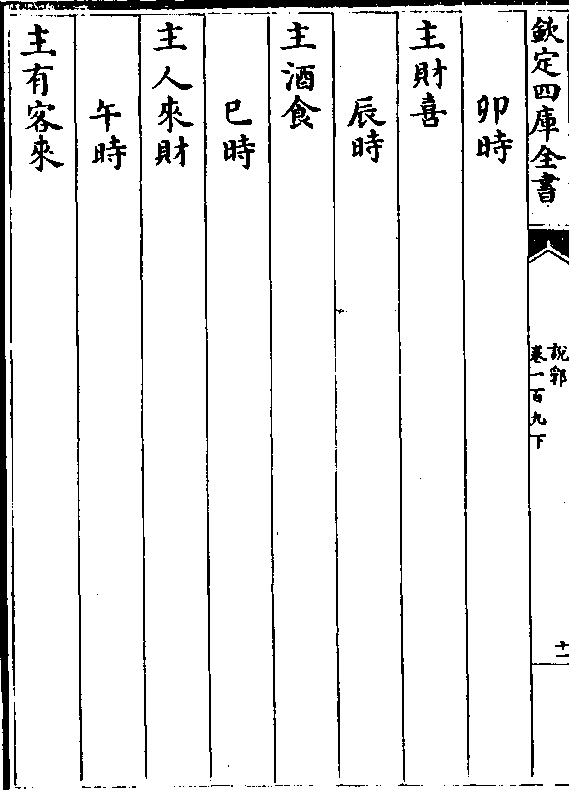 欽定四庫全書
說郛
卷一百九下
十一
卯時
主財喜
辰時
主酒食
巳時
主人來財
午時
主有客來